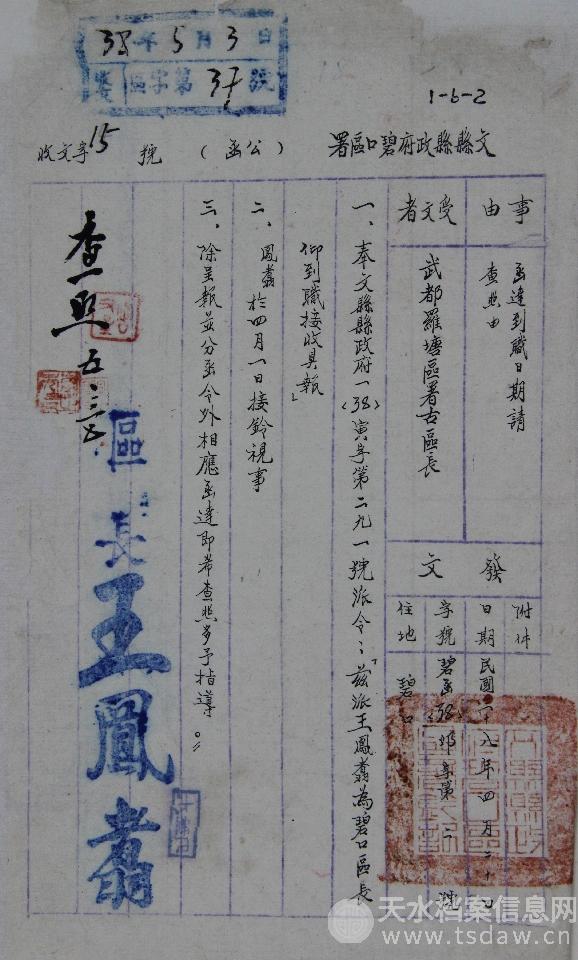 38年5月3日
收 區字第37號
1-6-2
文縣縣政府碧口區署（公函）
收文字15號
事由
函達到職日期請
查照由
受文者
武都羅塘區署古區長
發文
附件
日期 民國卅八年四月二十日
字號 碧函(38)卯字第二號
住地 碧口
一、奉文縣縣政府一(38)寅字第二九一號派令：「茲派王鳳翥為碧口區長
仰到職接收具報」
二、鳳翥於四月一日接鈴視事
三、除呈報並分函令外相應函達即希查照多予指導。
區長王鳳翥
查照 五、三
天水档案信息网
www.tsdaw.cn